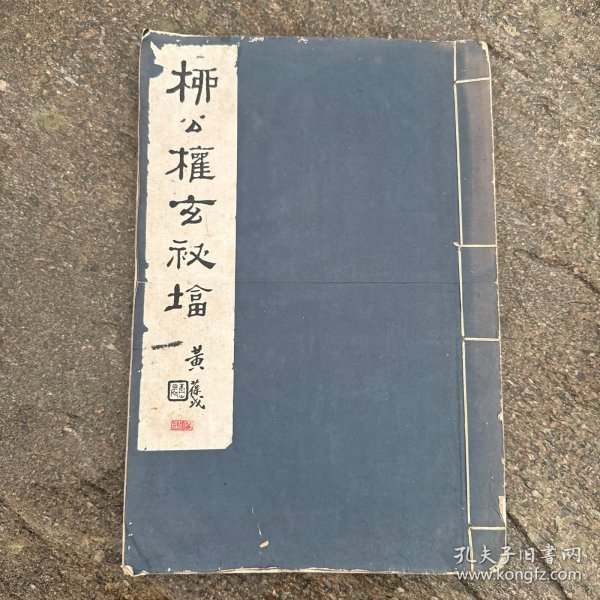 柳公權玄秘塔
黄葆戉
孔夫子旧書网
www.kongfz.com